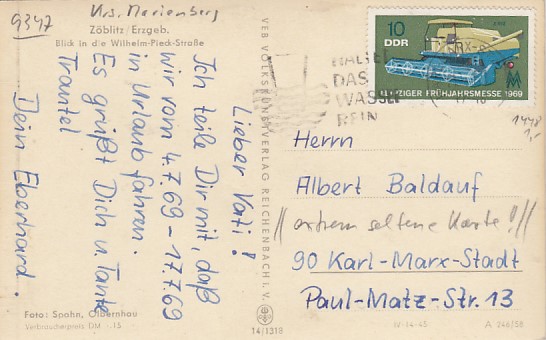 9347
Krs. Marienberg
Zöblitz/Erzgeb.
Blick in die Wilhelm-Pieck-Straße
Lieber Vati!
Ich teile Dir mit, daß
wir vom 4.7.69 - 17.7.69
in Urlaub fahren.
Es grüßt Dich u. Tante
Trautel
Dein Eberhard.
Foto: Spohn, Olbernhau
Verbraucherpreis DM -.15
VEB VOLKSKUNSTVERLAG REICHENBACH I. V.
14/1318
10
DDR
LEIPZIGER FRÜHJAHRSMESSE 1969
HALTET
DAS
WASSER
REIN
1448
1,-
Herrn
Albert Baldauf
// extrem seltene Karte! //
90 Karl-Marx-Stadt
Paul-Matz-Str. 13
IV-14-45
A 248/58